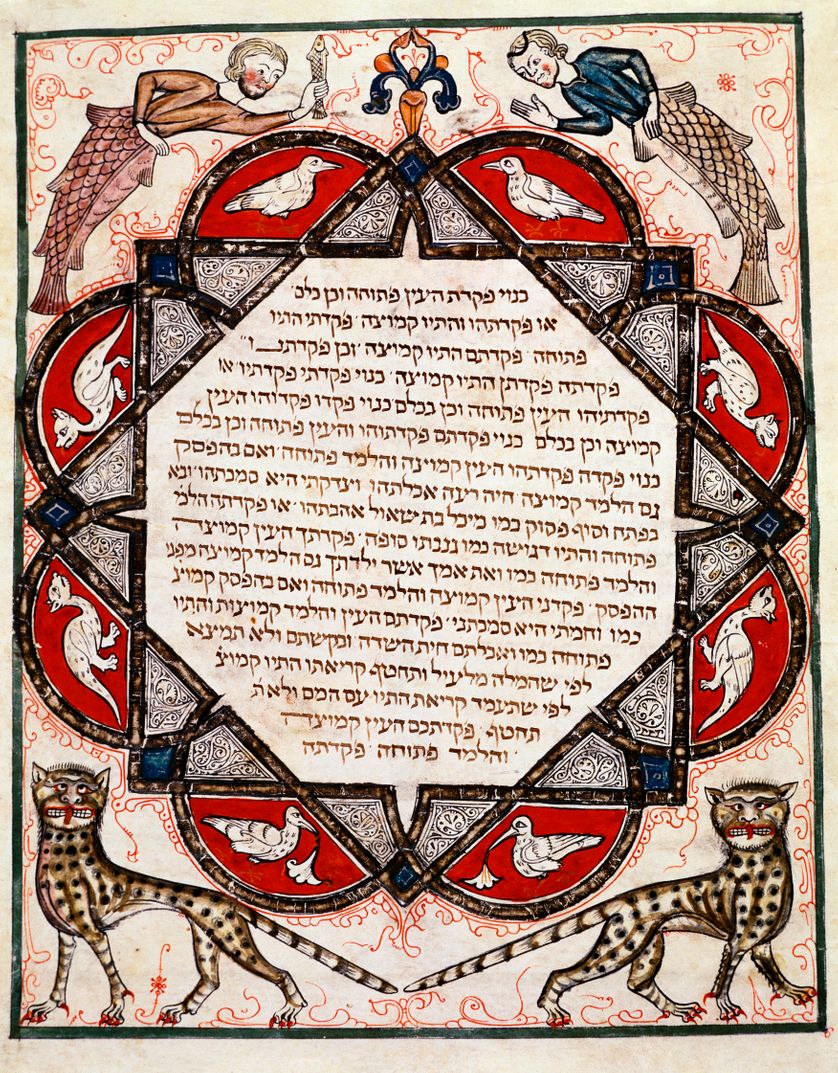 כנוי פקדת העין פתוחה וכן כלם
או פקדתהו והתיו קמוצה פקדתי התיו
פתוחה פקדתם התיו קמוצה וכן פקדתנו
פקדתה פקדתן התיו קמוצה כנוי פקדתי פקדתיו או
פקדתיהו העין פתוחה וכן בכלם כנוי פקדו פקדוהו העין
קמוצה וכן בכלם כנוי פקדתם פקדתוהו והעין פתוחה וכן בכלם
כנוי פקדה פקדתהו העין קמוצה והלמד פתוחה ואם בהפסק
גם הלמד קמוצה חיה רעה אכלתהו וצדקתי היא סמכתהו ובא
בפתח וסוף פסוק כמו מיכל בת שאול אהבתהו או פקדתה הלמ
פתוחה והתיו דגישה כמו גנבתו סופה פקדתך העין קמוצה
והלמד פתוחה כמו ואת אמך אשר ילדתך גם הלמד קמוצה מפני
ההפסק פקדני העין קמוצה והלמד פתוחה ואם בהפסק קמוצ
כמו וחמתי היא סמכתני פקדתם העין והלמד קמוצות והתיו
פתוחה כמו ואכלתם חית השדה ובקשתם ולא תמצא
לפי שהמלה מלעיל ותחטף קריאתו התיו קמוצ
לפי שתעמד קריאת התיו עם המם ולא ת
תחטף פקדתכם העין קמוצה
והלמד פתוחה פקדתה